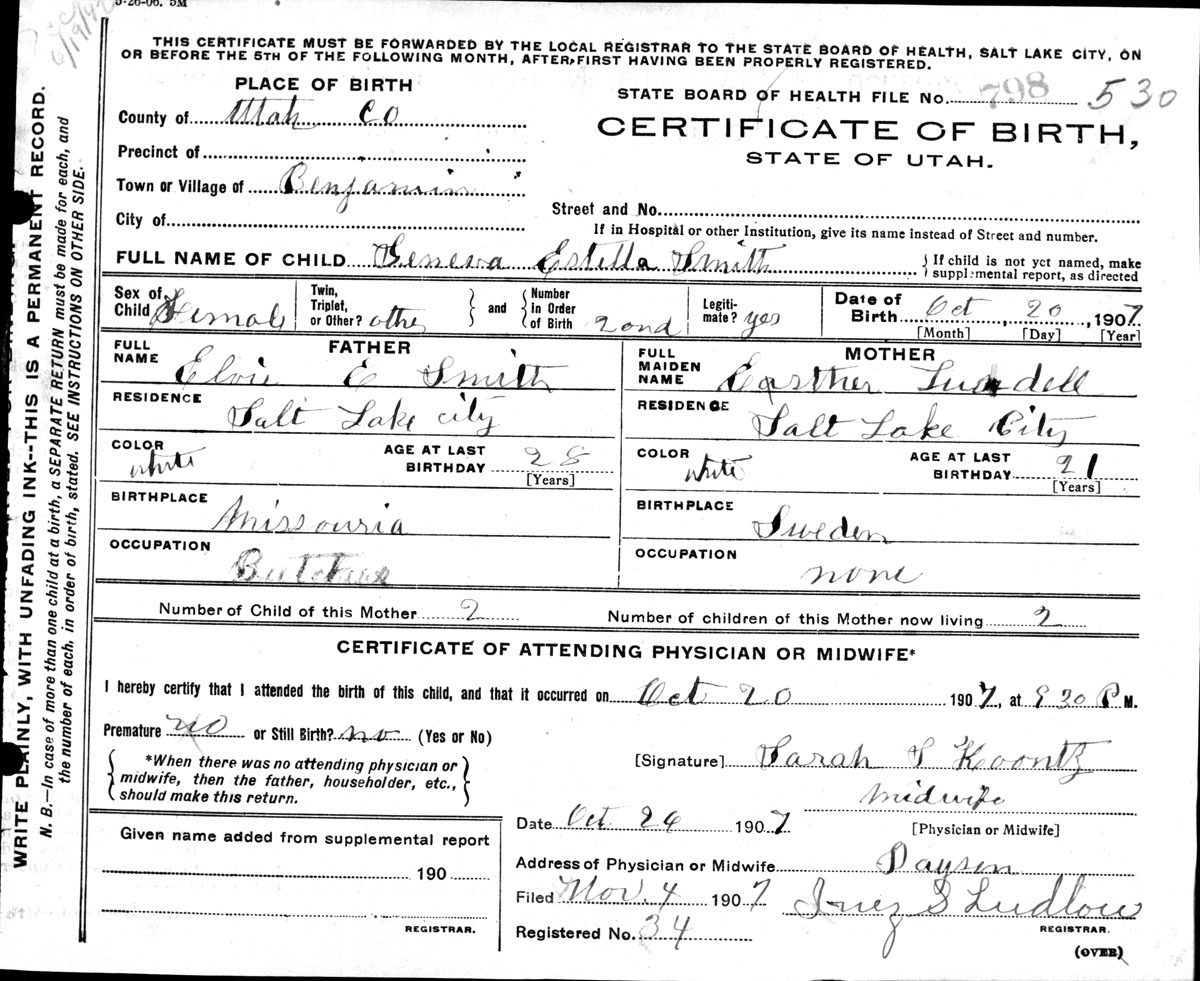 5-26-06. 5M
6/19/42
THIS CERTIFICATE MUST BE FORWARDED BY THE LOCAL REGISTRAR TO THE STATE BOARD OF HEALTH, SALT LAKE CITY, ON
OR BEFORE THE 5TH OF THE FOLLOWING MONTH, AFTER FIRST HAVING BEEN PROPERLY REGISTERED.
PLACE OF BIRTH
STATE BOARD OF HEALTH FILE No. 798 530
County of Utah Co
CERTIFICATE OF BIRTH,
STATE OF UTAH.
Precinct of
Town or Village of Benjamin
City of
Street and No.
If in Hospital or other Institution, give its name instead of Street and number.
FULL NAME OF CHILD Geneva Estella Smith { If child is not yet named, make supplemental report, as directed
Sex of Child Female
Twin, Triplet, or Other? other } and { Number in Order of Birth 2ond
Legiti-mate? yes
Date of Birth Oct, 20, 1907
[Month] [Day] [Year]
FATHER
FULL NAME Elvie E Smith
RESIDENCE Salt Lake city
COLOR white AGE AT LAST BIRTHDAY 28
[Years]
BIRTHPLACE Missouria
OCCUPATION
MOTHER
FULL MAIDEN NAME Easther Lundell
RESIDENCE Salt Lake City
COLOR white AGE AT LAST BIRTHDAY 21
[Years]
BIRTHPLACE Sweden
OCCUPATION none
Number of Child of this Mother 2 Number of children of this Mother now living 2
CERTIFICATE OF ATTENDING PHYSICIAN OR MIDWIFE*
I hereby certify that I attended the birth of this child, and that it occurred on Oct 20 1907, at 9 30 P M.
Premature no or Still Birth? no (Yes or No)
{ *When there was no attending physician or
midwife, then the father, householder, etc.,
should make this return. }
[Signature] Sarah S Koontz
midwife
[Physician or Midwife]
Date Oct 24 1907
Address of Physician or Midwife Payson
Filed Nov. 4 1907 Inez S Ludlow
REGISTRAR.
Registered No. 34
(OVER)
Given name added from supplemental report
190
REGISTRAR.
WRITE PLAINLY, WITH UNFADING INK--THIS IS A PERMANENT RECORD.
N. B.—In case of more than one child at a birth, a SEPARATE RETURN must be made for each, and
the number of each, in order of birth, stated. SEE INSTRUCTIONS ON OTHER SIDE.